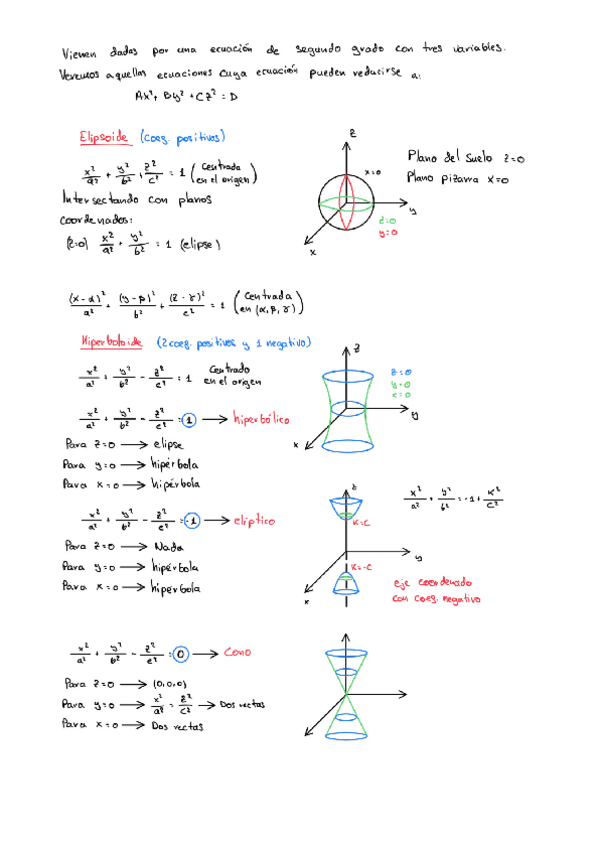 Vienen dadas por una ecuación de segundo grado con tres variables.
Veremos aquellas ecuaciones cuya ecuación pueden reducirse a:
Ax² + By² + Cz² = D
Elipsoide (coeg. positivos)
x²/a² + y²/b² + z²/c² = 1 (Centrada en el origen)
Intersectando con planos
coordenados:
(z=0) x²/a² + y²/b² = 1 (elipse)
z
x=0
y
z=0
y=0
x
Plano del suelo z=0
Plano pizarra x=0
(x-α)²/a² + (y-β)²/b² + (z-γ)²/c² = 1 (Centrada en (α, β, γ))
Hiperboloide (2 coeg. positivos y 1 negativo)
x²/a² + y²/b² - z²/c² = 1 Centrado en el origen
x²/a² + y²/b² - z²/c² = 1 → hiperbólico
Para z=0 → elipse
Para y=0 → hipérbola
Para x=0 → hipérbola
z
z=0
y=0
x=0
y
x
x²/a² + y²/b² - z²/c² = -1 → elíptico
Para z=0 → Nada
Para y=0 → hipérbola
Para x=0 → hipérbola
z
K=C
y
K=-C
x
x²/a² + y²/b² = -1 + K²/C²
eje coordenado
con coeg. negativo
x²/a² + y²/b² - z²/c² = 0 → Cono
Para z=0 → (0,0,0)
Para y=0 → x²/a² = z²/c² → Dos rectas
Para x=0 → Dos rectas